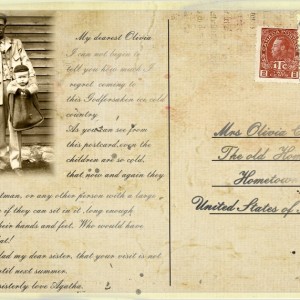 My dearest Olivia
I can not begin to
tell you how much I
regret coming to
this Godforsaken ice cold
country.
As you can see from
this postcard, even the
children are so cold,
that now and again they
tman, or any other person with a large
if they can set in it long enough
heir hands and feet. Who would have
at!
lad my dear sister, that your visit is not
ntil next summer.
sisterly love Agatha.
Mrs Olivia
The old Ho
Hometown
United States of